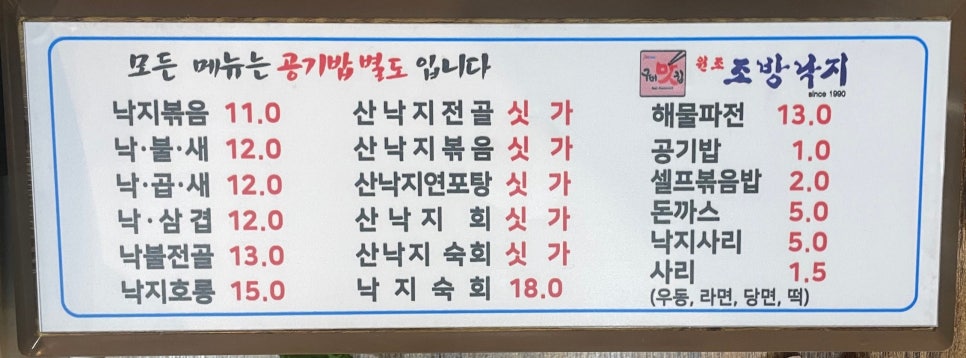 모든 메뉴는 공기밥 별도 입니다
낙지볶음 11.0
낙·불·새 12.0
낙·곱·새 12.0
낙·삼겹 12.0
낙불전골 13.0
낙지호롱 15.0
산낙지전골 싯가
산낙지볶음 싯가
산낙지연포탕 싯가
산낙지 회 싯가
산낙지 숙회 싯가
낙지숙회 18.0
원조 조방낙지
since 1990
해물파전 13.0
공기밥 1.0
셀프볶음밥 2.0
돈까스 5.0
낙지사리 5.0
사리 1.5
(우동, 라면, 당면, 떡)